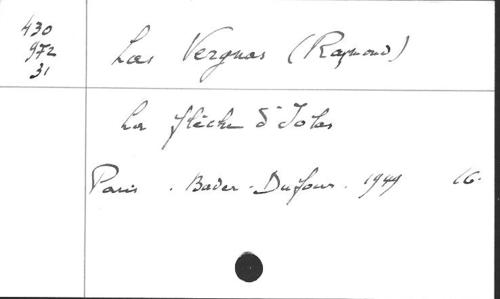 430
972
31
Las Vergnas (Raymond)
La flèche d'Iolas
Paris . Bader-Dufour . 1949 16.